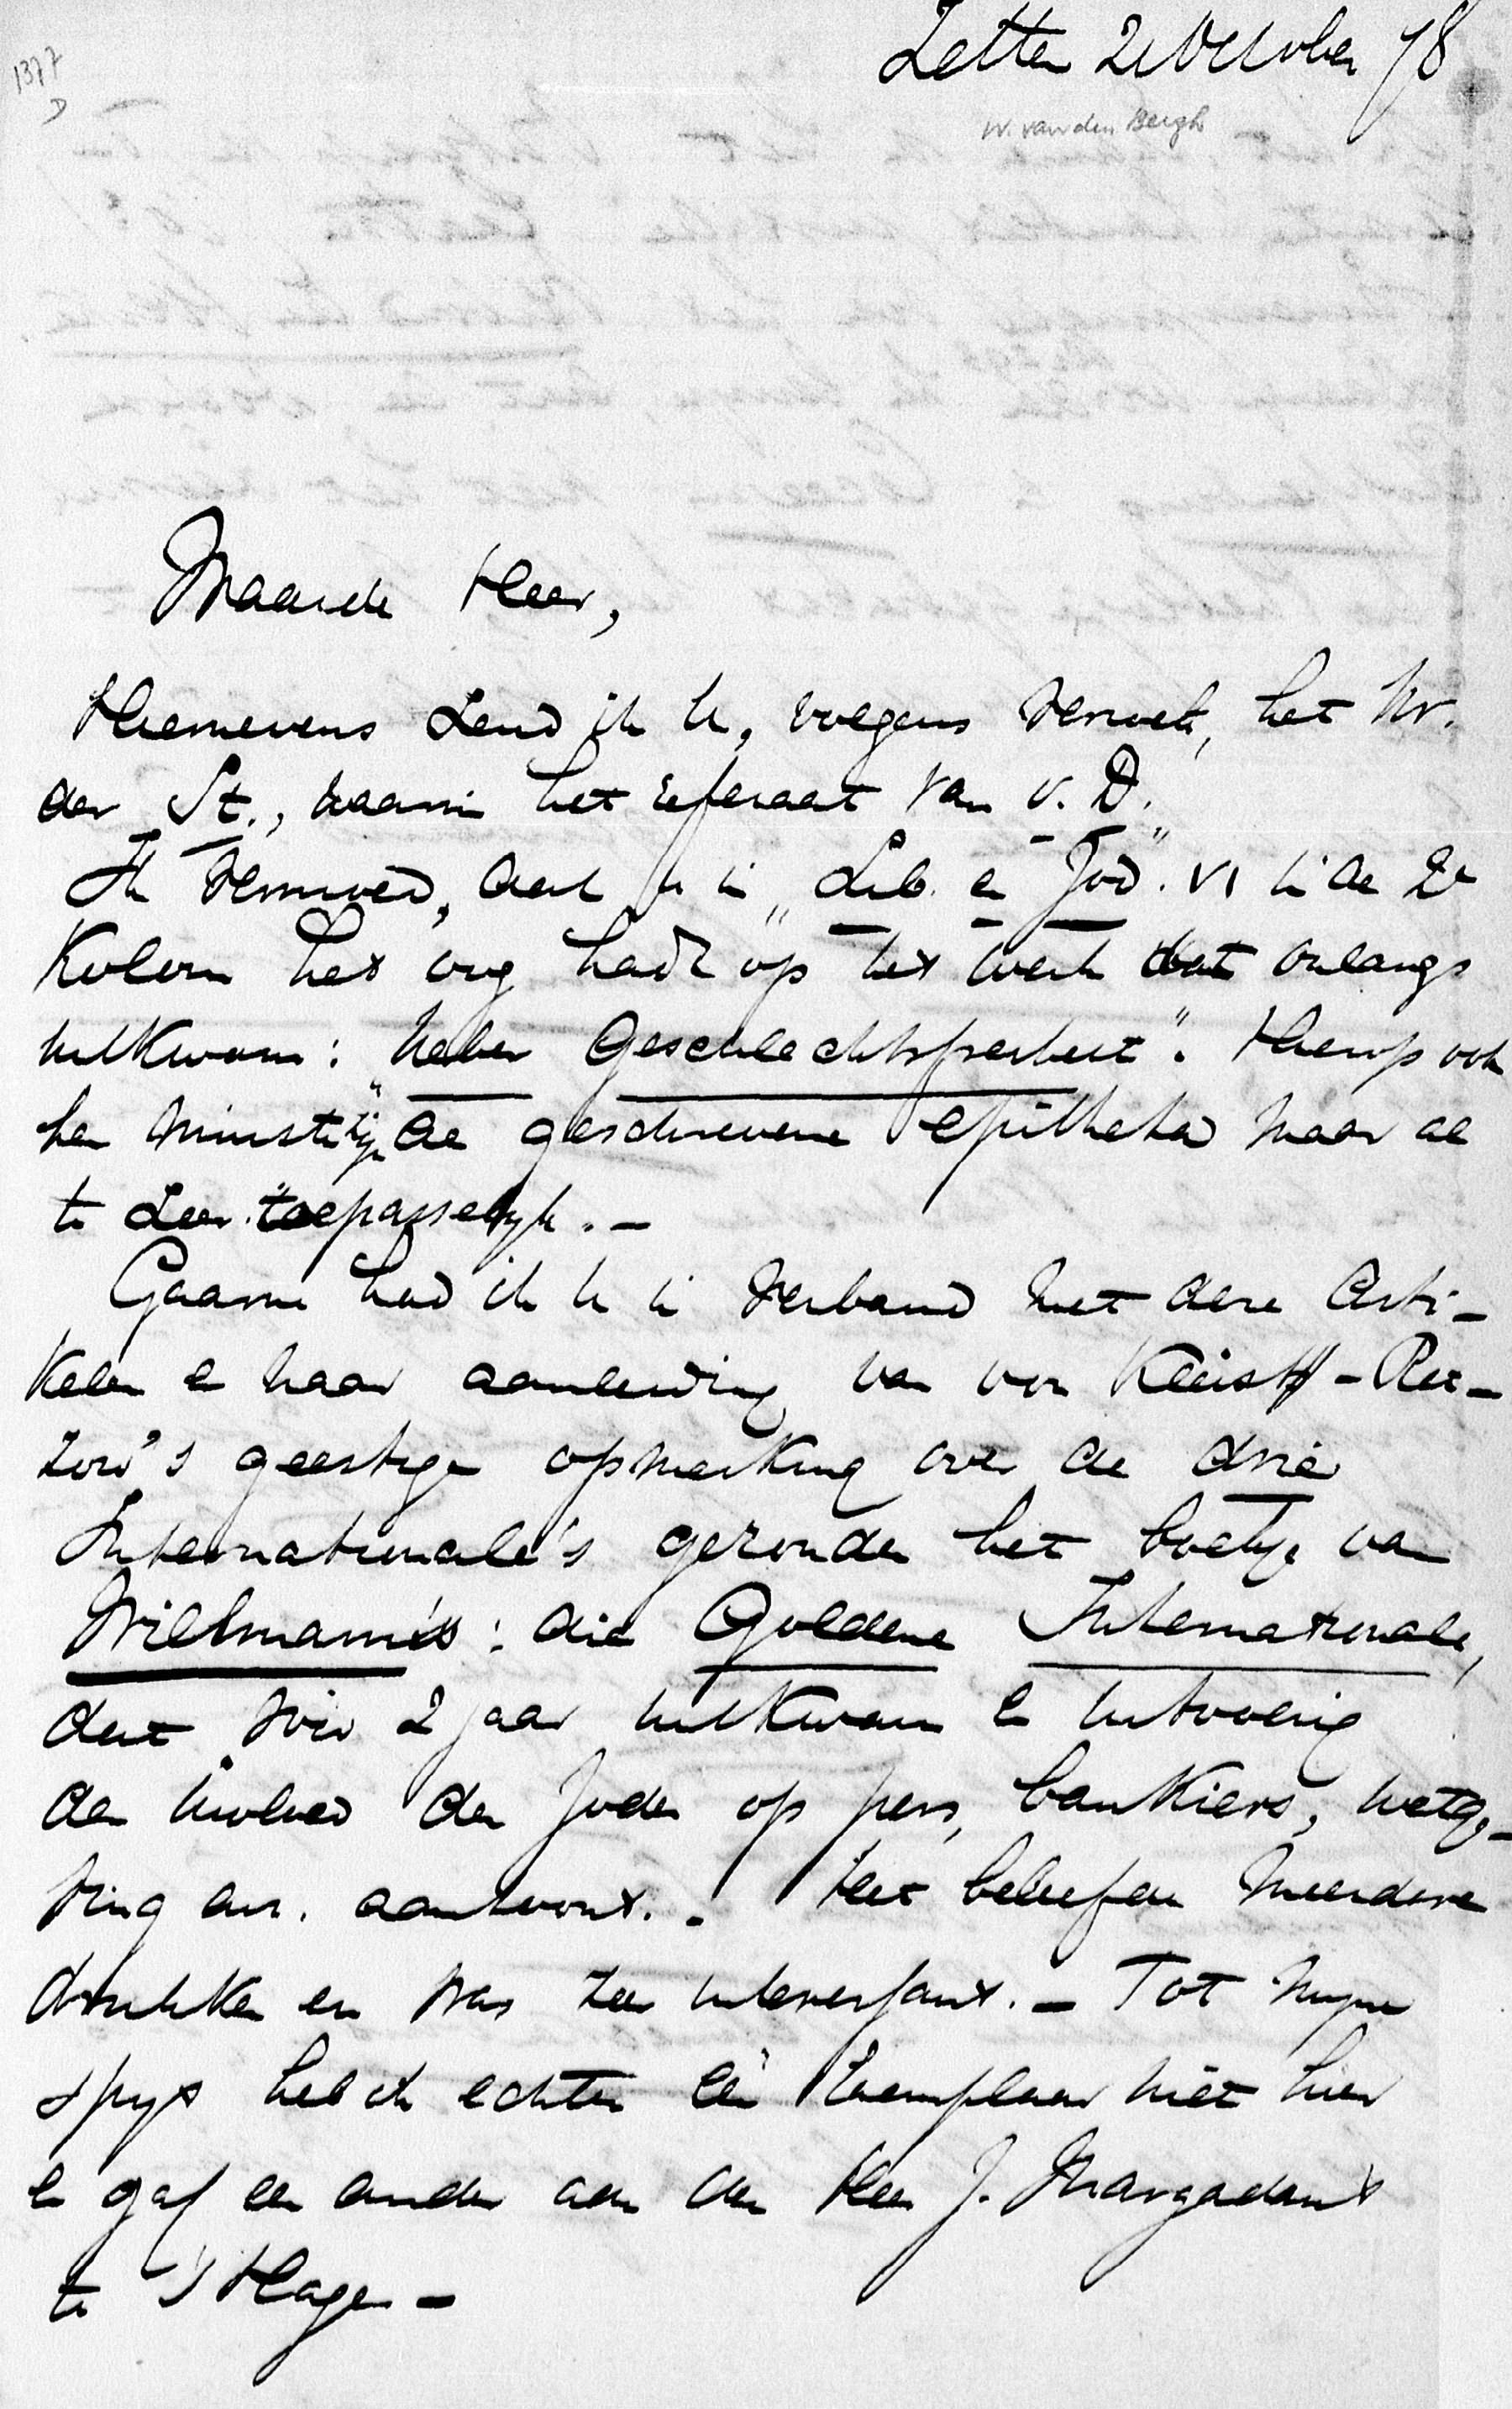 1377
D
Zetten 21 October 78
W. van den Bergh
Waarde Heer,
Hiernevens zend ik U, volgens verzoek, het Nr.
der St., waarin het referaat van v. D.
Ik vermoed, dat U in „Lib. en Jod." VI in de 2e
Kolom het oog hadt op het werk dat onlangs
uitkwam: „Ueber Geschlechtsfreiheit". Hierop ook
ten minste zijn de geschrevene epitheta maar al
te zeer toepasselijk. –
Gaarne had ik U in verband met deze Arti-
kelen en naar aanleiding van von Kleist-Ret-
zow's geestige opmerking over de drie
Internationale's gezonden het boekje van
Wilmanns: die Goldene Internationale,
dat voor 2 jaar uitkwam en uitvoerig
den invloed der Joden op pers, bankiers, wetge-
ving enz. aantoont. – Het beleefde meerdere
drukken en was zeer interessant. – Tot mijne
spijt heb ik echter één Exemplaar niet hier
en gaf een ander aan den Heer J. Margadant
te 's Hage –